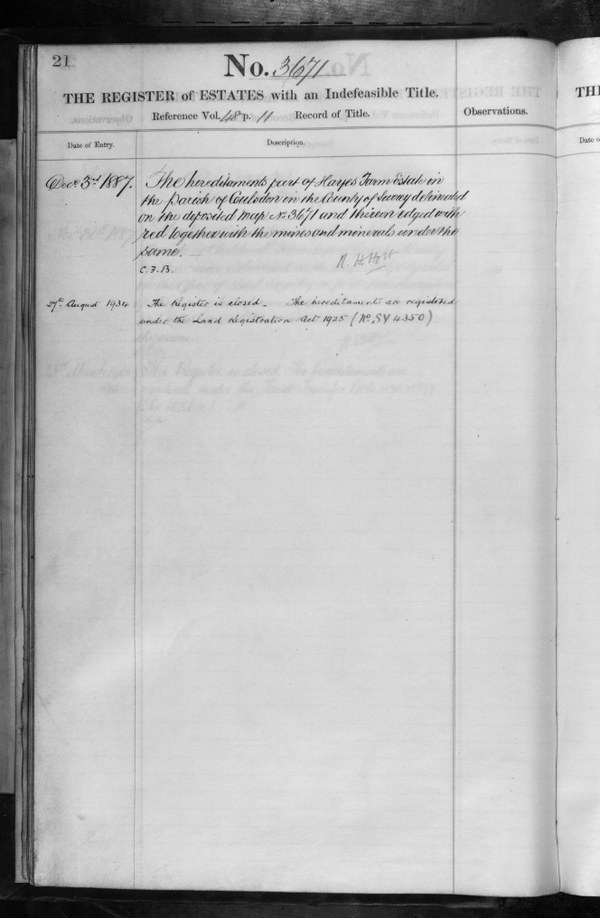 21
No. 3671
THE REGISTER of ESTATES with an Indefeasible Title.
Reference Vol. 48 p. 11 Record of Title.
Observations.
Date of Entry.
Description.
Decr 3rd 1887.
The hereditaments part of Hayes Farm Estate in
the Parish of Coulsdon in the County of Surrey delineated
on the deposited Map No 3671 and thereon edged with
red together with the mines and minerals under the
same.
C.F.B.
27th August 1934
The Register is closed. The hereditaments are registered
under the Land Registration Act 1925 (No. SY 4350)
TH
Date o